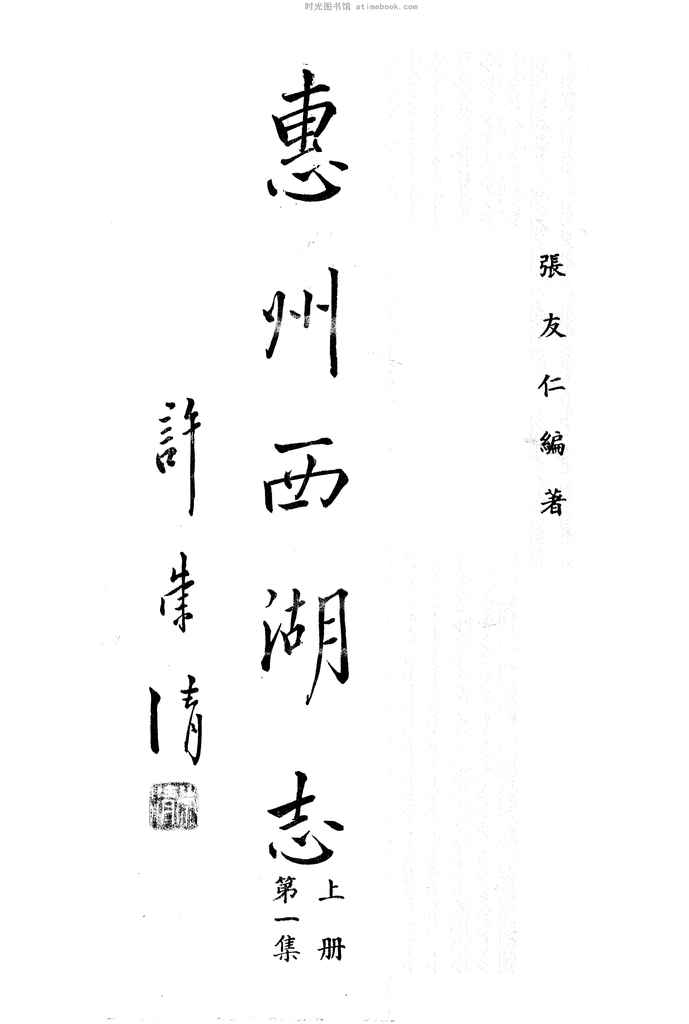 时光图书馆 atimebook.com
張友仁編著
惠州西湖志
上册
第一集
許崇清